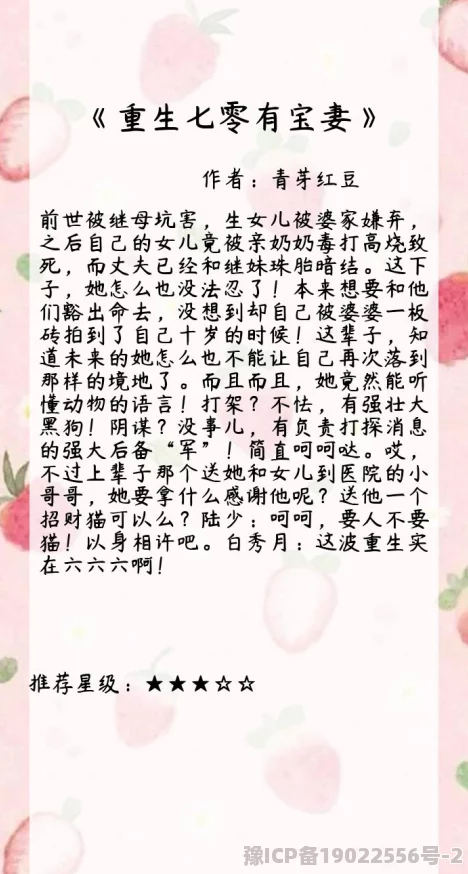 《重生七零有宝妻》
作者：青芽红豆
前世被继母坑害，生女儿被婆家嫌弃，
之后自己的女儿竟被亲奶奶毒打高烧致
死，而丈夫已经和继妹珠胎暗结。这下
子，她怎么也没法忍了！本来想要和他
们豁出命去，没想到却自己被婆婆一板
砖拍到了自己十岁的时候！这辈子，知
道未来的她怎么也不能让自己再次落到
那样的境地了。而且而且，她竟然能听
懂动物的语言！打架？不怯，有强壮大
黑狗！阴谋？没事儿，有负责打探消息
的强大后备“军”！简直呵呵哒。哎，
不过上辈子那个送她和女儿到医院的小
哥哥，她要拿什么感谢他呢？送他一个
招财猫可以么？陆少：呵呵，要人不要
猫！以身相许吧。白秀月：这波重生实
在六六六啊！
推荐星级：★★★☆☆
豫ICP备19022556号-2